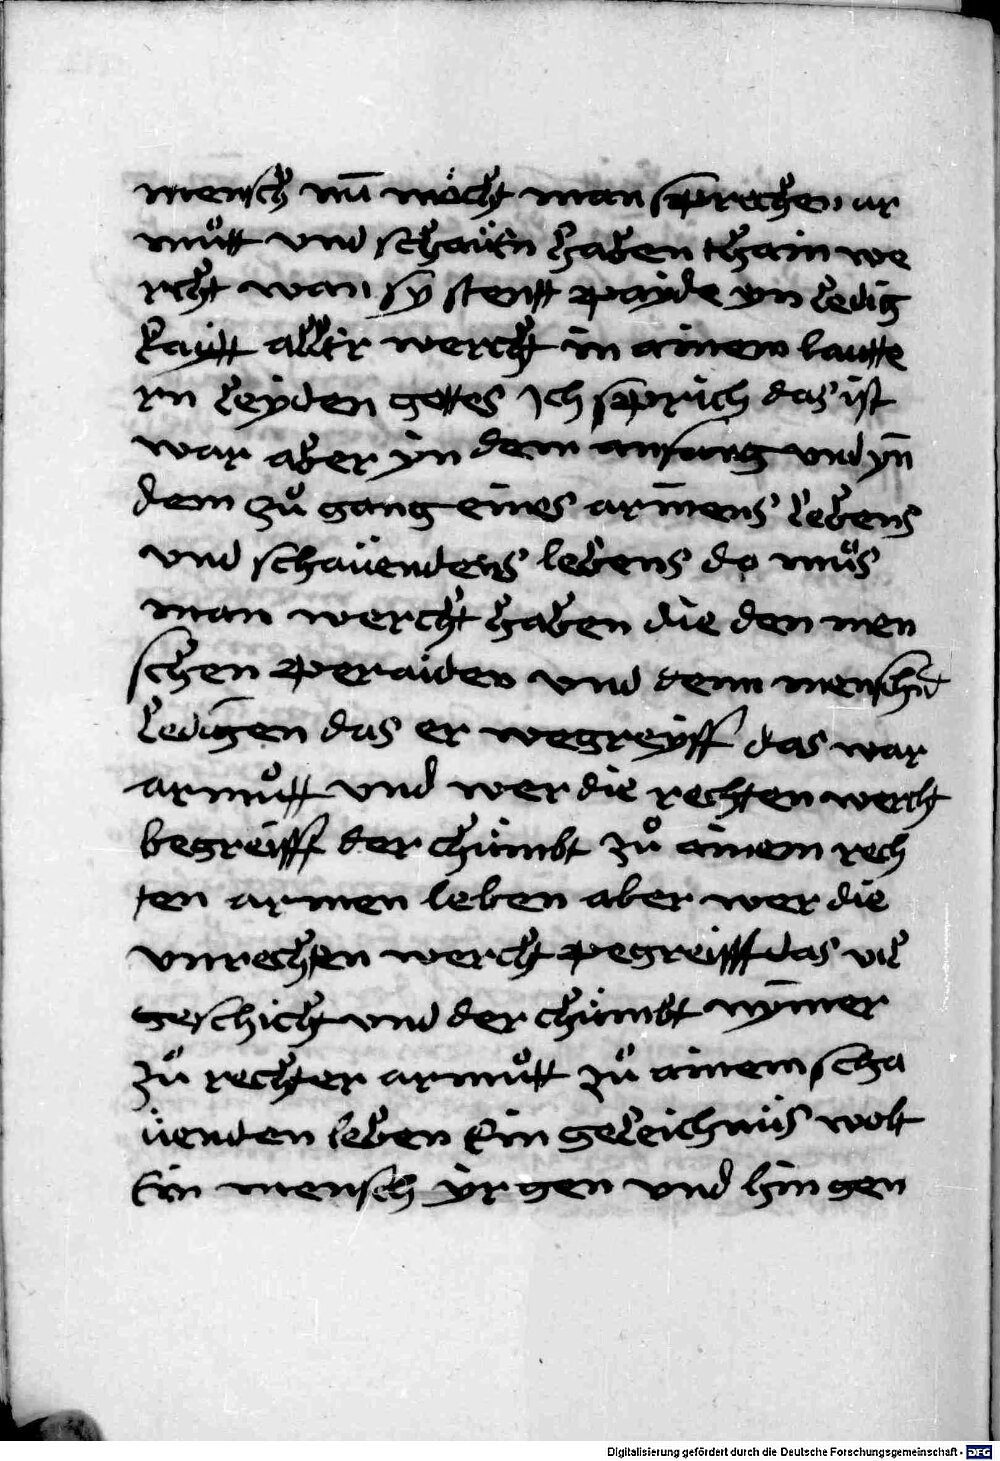 mensch nū möcht man sprechen ar
můtt vnd schaẅn haben chain we
rcht wan sy stentt payde yn ledig
kaytt aller werch in ainem lautte
rn leyden gottes Ich sprich das ist
war aber yn dem anfang vnd yn̄
dem zů gang eines armens lebens
vnd schaüendens lebens do můs
man wercht haben die den men
schen peraiden vnd denn menschn̄
ledigen das er wegreyff das war
armůtt vnd wer die rechten werch
begreifff der chümbt zů ainem rech
ten armen leben aber wer die
vnrechten wercht pegreiffff das vil
geschicht vnd der chümbt nym̄er
zů rechter armůtt zů ainem scha
üenden leben Ein geleichnüs wolt
Ein mensch yrgen vnd hin gen
Digitalisierung gefördert durch die Deutsche Forschungsgemeinschaft - DFG